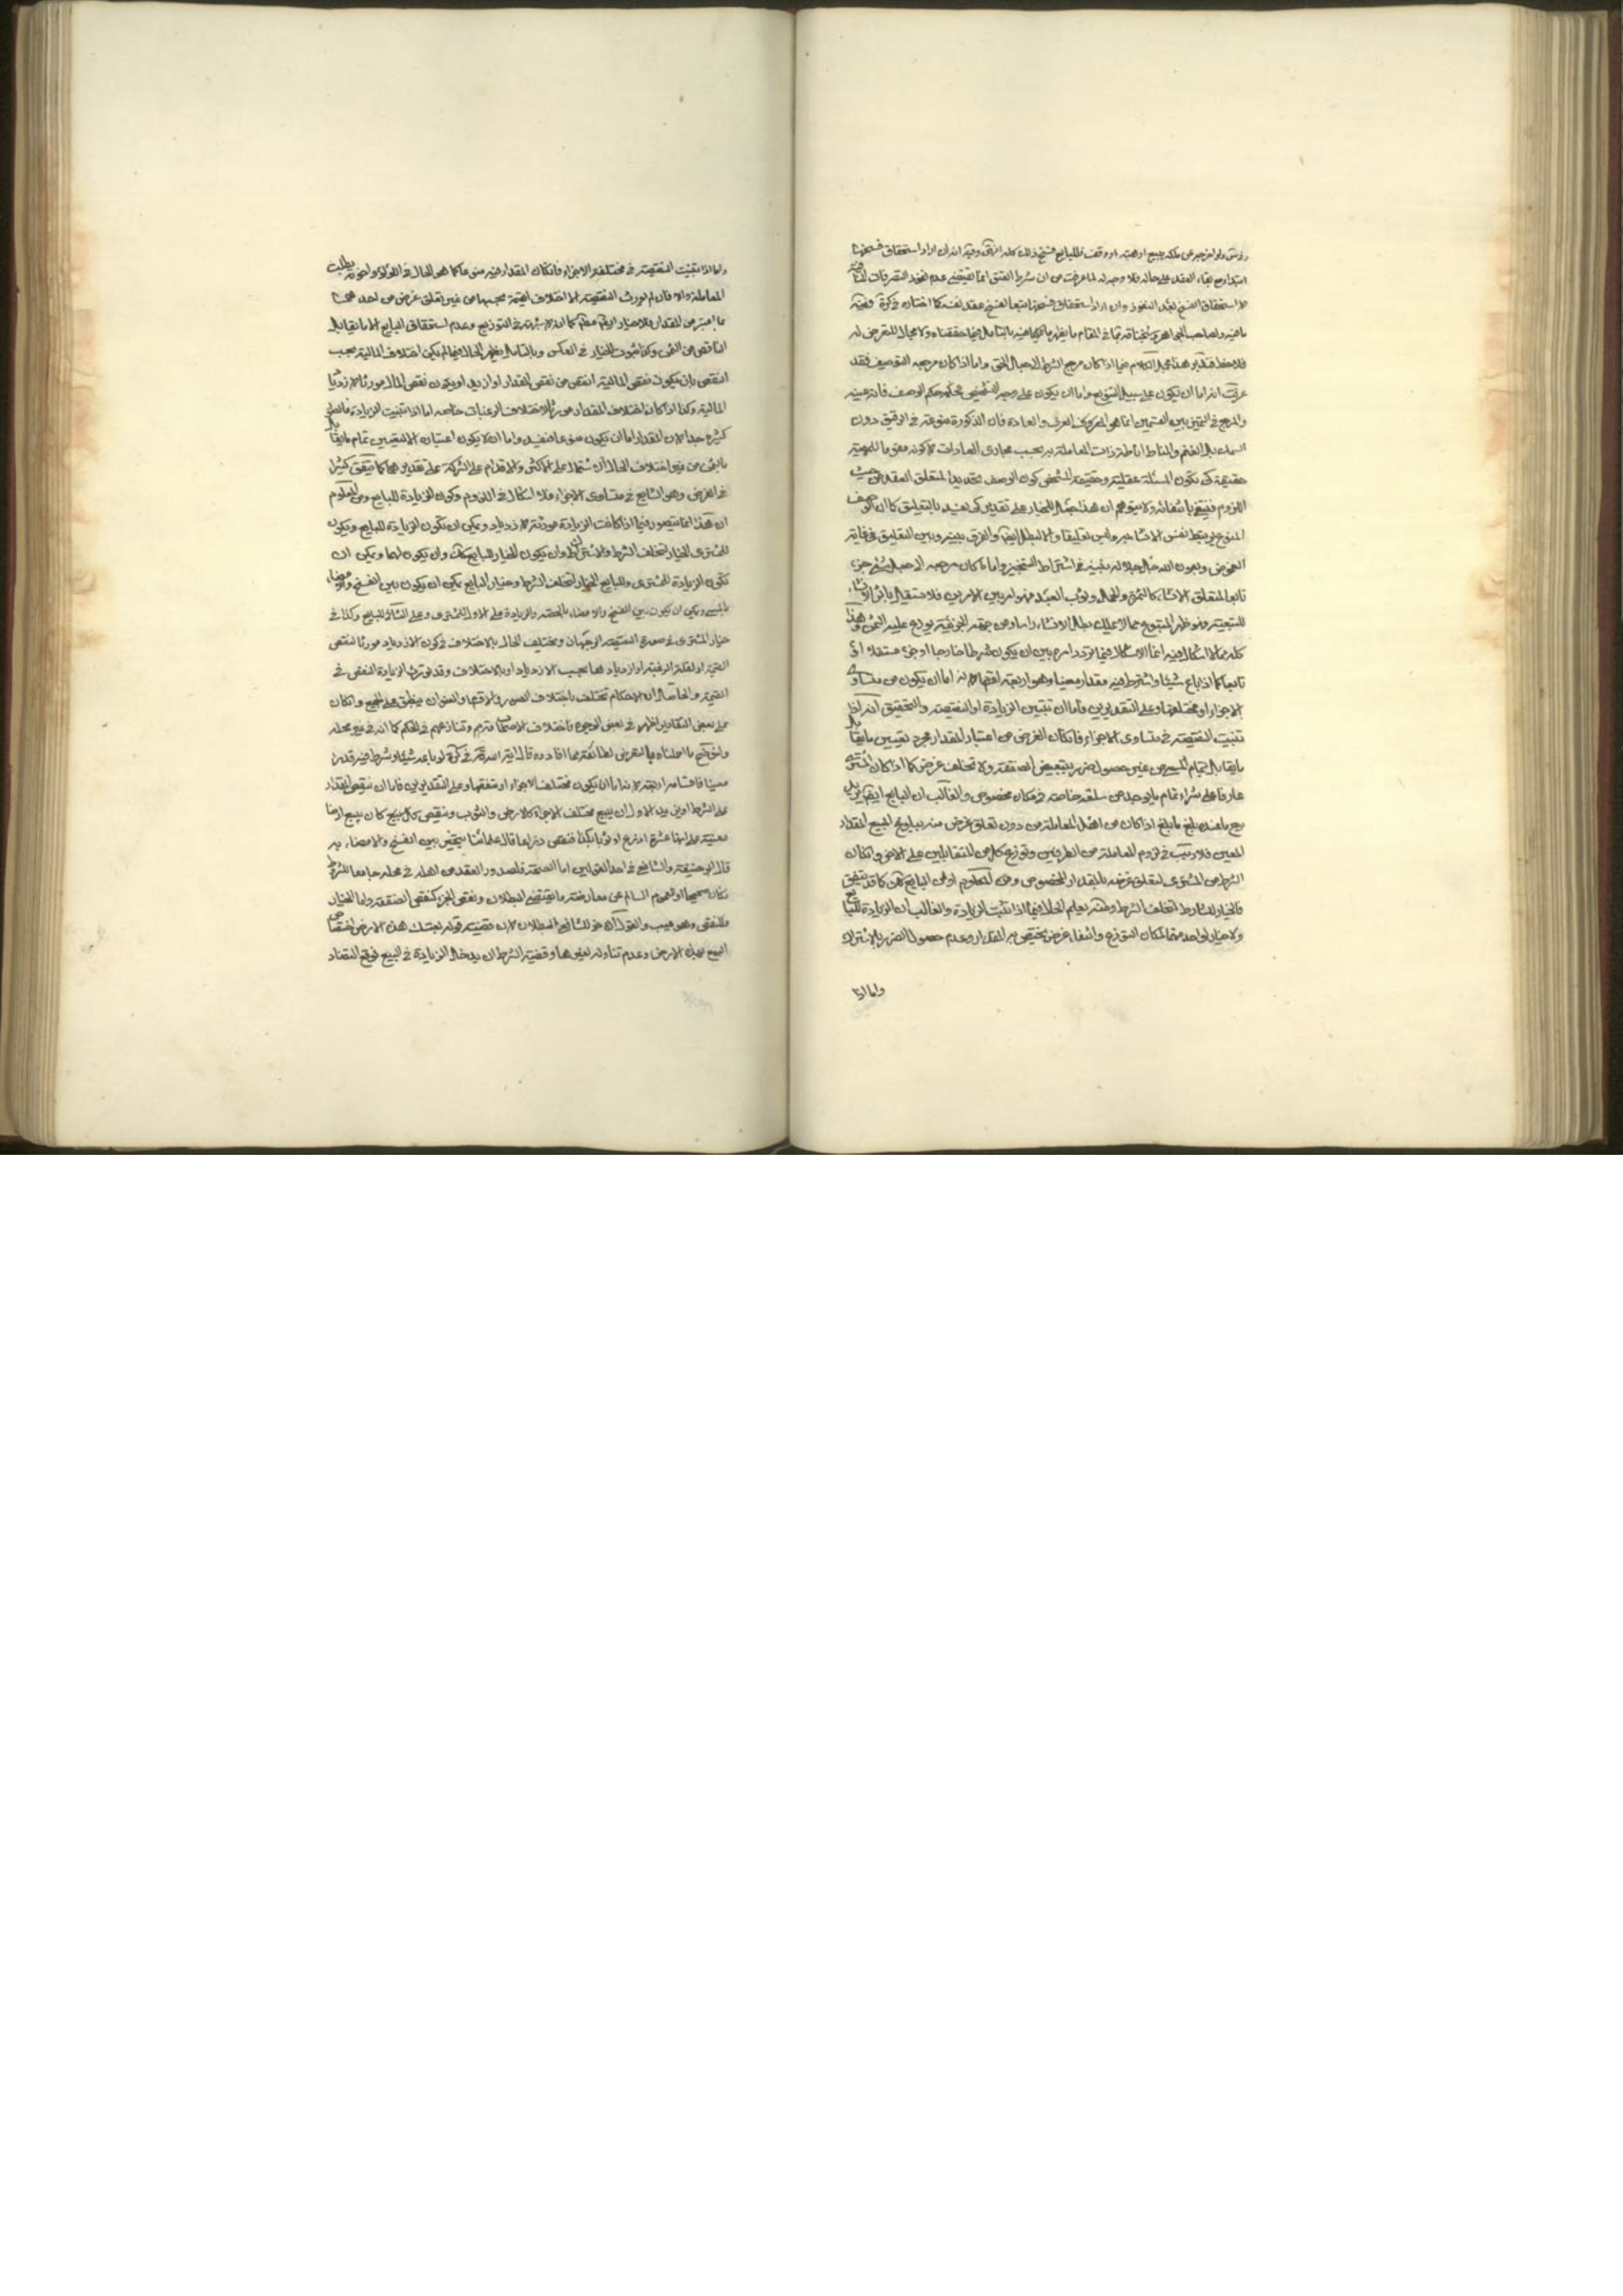 ولو اخرجه عن ملكه ببيع او هبة او وقف فللبايع فسخ ذلك كله انتهى وفيه انه ان اراد استحقاق فسخها
ابتداء مع بقاء العقد على حاله فلا وجه له لما عرفت من ان شرط العتق انما يقتضي عدم نفوذ التصرفات
لا استحقاق الفسخ بعد النفوذ وان اراد استحقاق فسخها تبعا لفسخ عقد نفسه كما اختاره في كرة ففيه
ما فيه ولصاحب الجواهر في المقام ما يظهر ما فيه بالتامل فيما حققناه ولا مجال للتعرض له
فلاحظ فتدبر هذا مجمل الكلام فيما اذا كان مرجع الشرط الى جعل الحق واما اذا كان مرجعه التوصيف فقد
عرفت انه اما ان يكون على سبيل التنويع واما ان يكون على وجه التشخيص فحكمه حكم الوصف فانه عينه
والمرجع في التمييز بين القسمين انما هو العرف والعادة فان الذكورة منوعة في الرقيق دون
الغنم والمناط اناطة ذات المعاملة به بحسب مجاري العادات لا كونه مقوما للمهية
حقيقة كي تكون المسئلة عقلية وحقيقة المشخص كون الوصف تحديدا لمتعلق العقد من حيث
اللزوم فينتفي بانتفائه ولا يتوهم ان هذا جعل للخيار على تقدير كي يعتبر بالتعليق كما ان الوصف
المنوع يرتبط نفس الانشاء به وليس تعليقا والا لبطل ايضا والفرق بينه وبين التعليق في غاية
الغموض وبعون الله جل جلاله نبينه في اشتراط التنجيز واما ما كان مرجعه الى جعل شيء جزء
تابعا لمتعلق الانشاء كالثمرة والحمل وثوب العبد فهو امر بين الامرين فلا مستقل بالانشاء
للتبعية فلو ظهر المتبوع مما لا يملك بطل الانشاء راسا ومن جهة الجزئية يوزع عليه الثمن وهذا
كله مما لا اشكال فيه انما الاشكال فيما تردد امره بين ان يكون شرطا خارجا او جزء مستقلا او
تابعا كما اذا باع شيئا واشترط فيه مقدار معينا وهو اربعة اقسام لانه اما ان يكون من متساوي
الاجزاء او مختلفها وعلى التقديرين فاما ان تتبين الزيادة او النقيصة والتحقيق انه اذا
تبينت النقيصة في متساوي الاجزاء فان كان الغرض من اعتبار المقدار مجرد تعيين ما يقابل
ما يقابل تمام المبيع من غير حصول ضرر بتبعيض الصفقة ولا تخلف غرض كما اذا كان المشتري
عازما على شراء تمام ما يوجد من سلعة خاصة في مكان مخصوص والغالب ان البايع ايضا يريد
بيع ما عنده بلغ ما بلغ اذا كان من اهل المعاملة من دون تعلق غرض منه ببلوغ المبيع المقدار
المعين فلا ريب في لزوم المعاملة من الطرفين وتوزع كل من المتقابلين على الاخر وان كان
الشرط من المشتري لتعلق غرضه بالمقدار المخصوص ومن المعلوم او من البايع كما قد يتفق
فالخيار للشارط لتخلف الشرط ومنه يعلم الحال فيما اذا تبينت الزيادة والغالب ان الزيادة للبايع
ولا خيار لواحد منهما لمكان التوزع وانتفاء غرض يختص به المقدار وعدم حصول الضرر بالاشتراك
واما اذا
واما اذا تبينت النقيصة في مختلفة الاجزاء فان كان المقدار فيه منوعا كما هو الحال في اللؤلؤ واخوته بطلت
المعاملة والا فان لم يورث النقيصة الا اختلاف القيمة بحسبها من غير تعلق غرض من احدهما
ما اعتبر من المقدار فلا خيار لواحد منهما كما انه لا شبهة في التوزيع وعدم استحقاق البايع الا ما يقابل
الناقص من الثمن وكذا ثبوت الخيار في العكس وبالتامل يظهر الحال فيما لم يكن اختلاف المالية بحسب
النقص بان يكون نقص المالية انقص من نقص المقدار او ازيد او يكون نقص المال مورثا لازدياد
المالية وكذا اذا كان اختلاف المقدار مورثا لاختلاف الرغبات خاصة اما اذا تبينت الزيادة فالصور
كثيرة جدا لان المقدار اما ان يكون منوعا فيبطل واما ان لا يكون اعتباره الا لتعيين تمام ما يقابل
بالثمن من غير اختلاف الحال ان يشتمل على الاكثر والاقدام على الشركة على تقديرهما كما يتفق كثيرا
في الارض وهو الشايع في متساوي الاجزاء فلا اشكال في اللزوم وكون الزيادة للبايع ومن المعلوم
ان هذا انما يتصور فيما اذا كانت الزيادة مورثة لازدياد ويمكن ان تكون الزيادة للبايع ويكون
للمشتري الخيار لتخلف الشرط والاشتراك وان يكون الخيار للبايع كك وان يكون لهما ويمكن ان
تكون الزيادة للمشتري وللبايع الخيار لتخلف الشرط وخيار البايع يمكن ان يكون بين الفسخ والامضاء
بالمسمى ويمكن ان يكون بين الفسخ والامضاء بالحصة والزيادة على الاول للمشتري وعلى الثاني للبايع وكذا في
خيار المشتري في صورة النقيصة الوجهان ويختلف الحال بالاختلاف في كون الازدياد مورثا لنقص
القيمة او لقلة الرغبة او ازديادها بحسب الازدياد او بالاختلاف وقد تورث الزيادة النقص في
القيمة والحاصل ان الاحكام تختلف باختلاف الصور والاقسام والعنوان ينطبق على الجميع وان كان
على بعض التقادير اظهر في بعض الوجوه فاختلاف الاصحاب وتنازعهم في الحكم كما انه في غير محله
ولنوضح ما اجملناه بالتعرض لطائفة مما افادوه قال اية الله في كرة لو باعه شيئا وشرط فيه قدرا
معينا فاقسامه اربعة لانه اما ان يكون مختلف الاجزاء او متفقها وعلى التقديرين فاما ان ينقص المقدار
على الشرط او يزيد الاول ان يبيع مختلف الاجزاء كالارض والثوب وينقص كان يبيع ارضا
معينة على انها عشرة اذرع او ثوبا كذلك فنقص ذراعا قال علمائنا يتخير بين الفسخ والامضاء وبه
قال ابو حنيفة والشافعي في احد القولين اما الصحة فلصدور العقد من اهله في محله جامعا للشرايط
فكان صحيحا والعموم السالم عن معارضة ما يقتضي البطلان ونقص الجزء كنقص الصفة واما الخيار
فللنقص وهو عيب والقول الاخر للشافعي البطلان لان قضية قوله بعتك هذه الارض اختصاص
البيع بهذه الارض وعدم تناوله لغيرها وقضية الشرط ان يدخل الزيادة في البيع فوقع التضاد